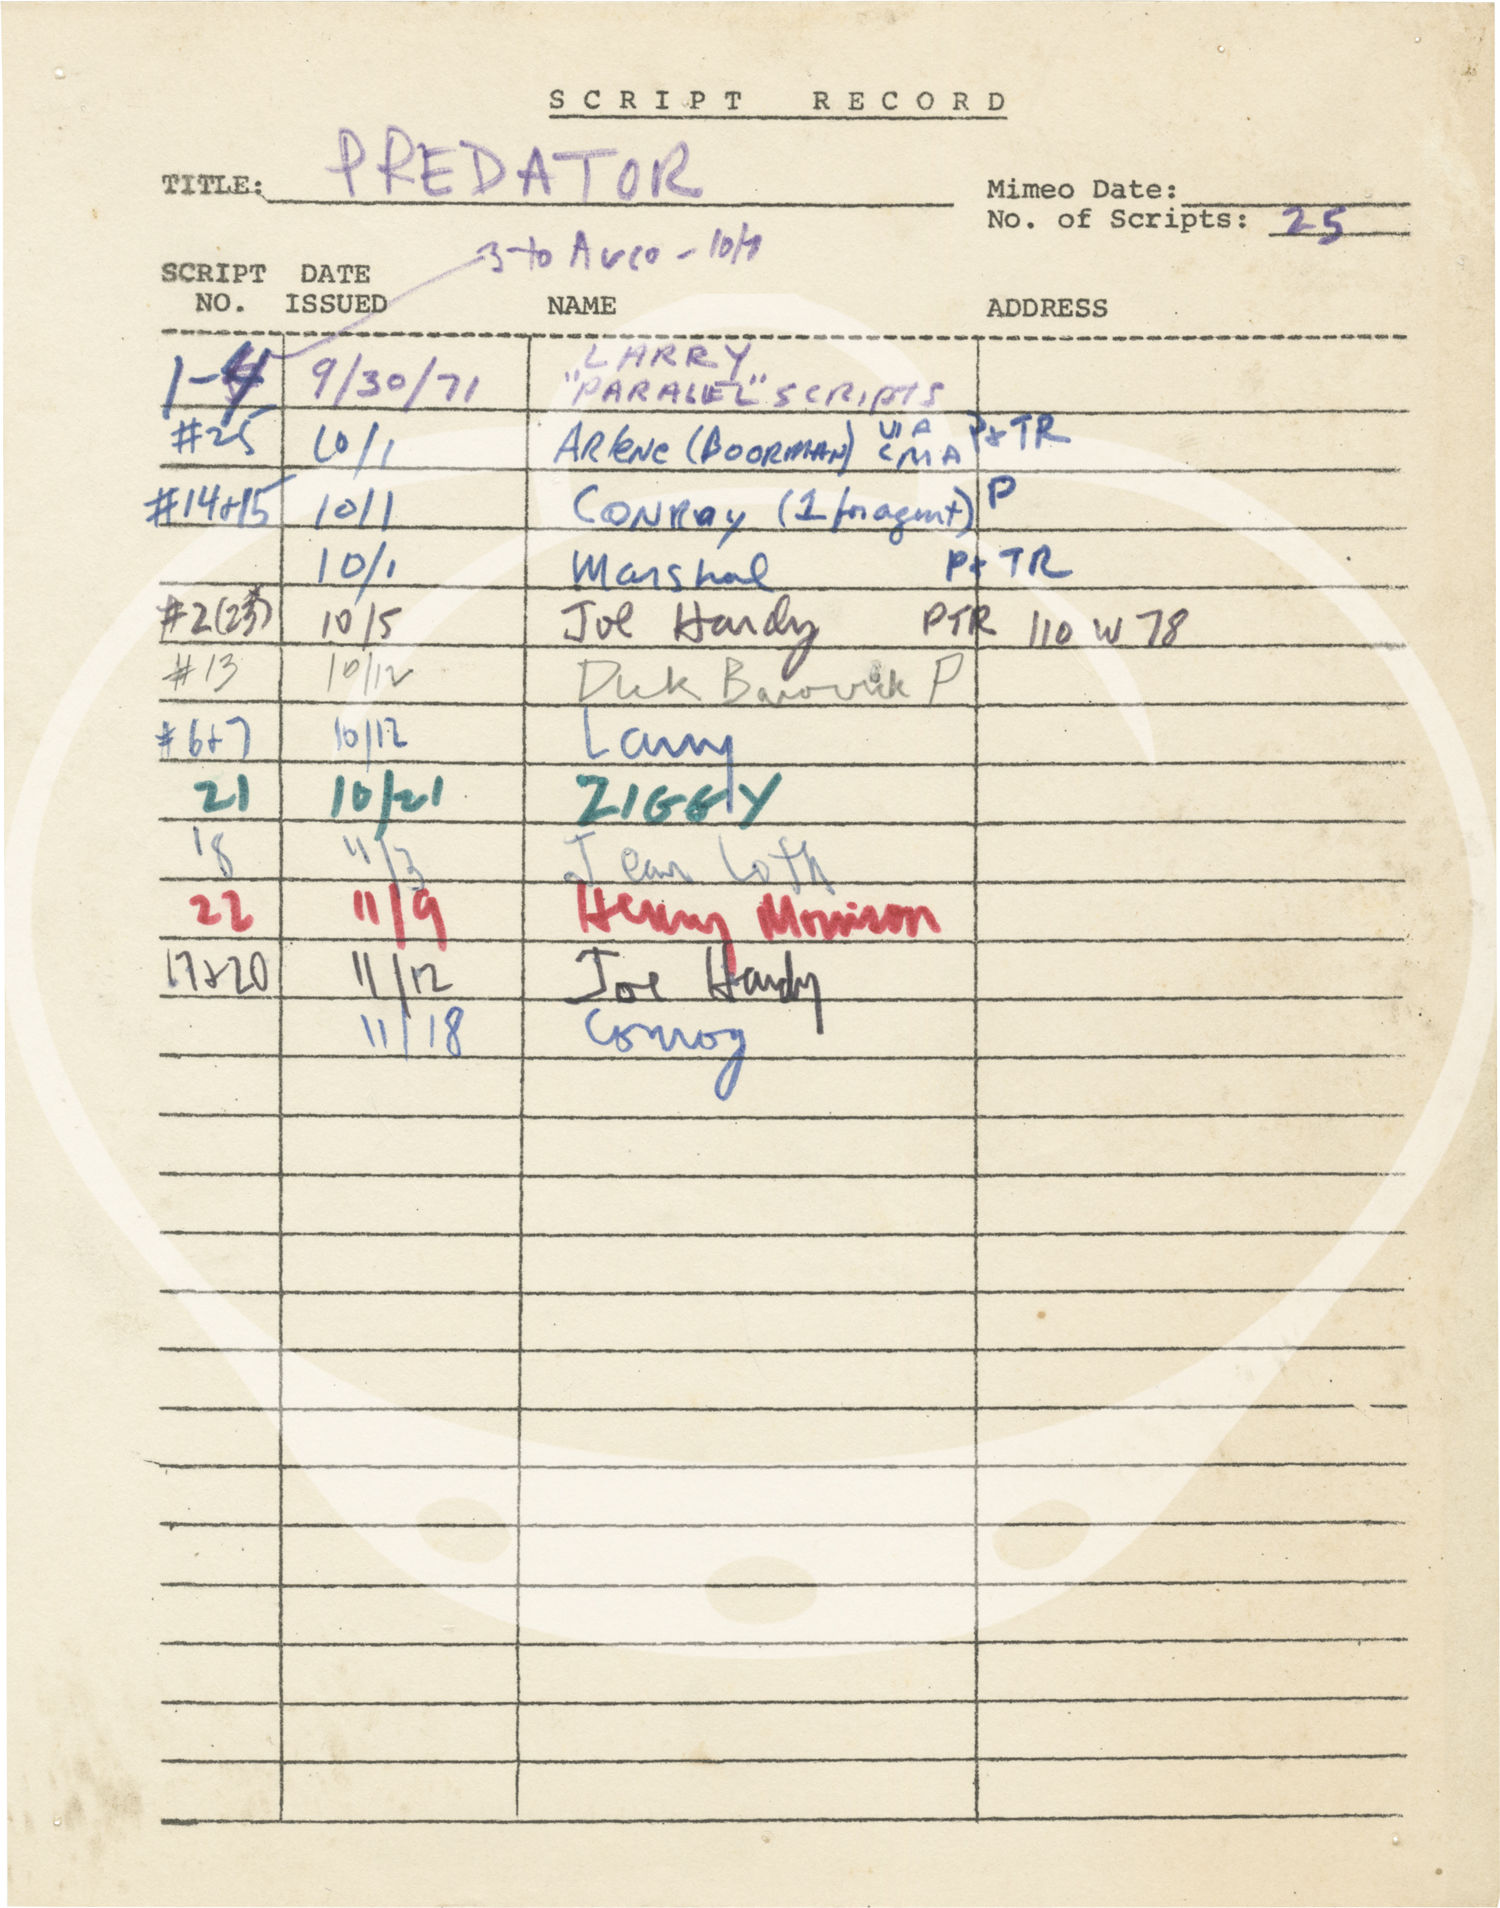 SCRIPT RECORD
TITLE: PREDATOR
Mimeo Date:
No. of Scripts: 25
3 to Avco - 10/7
SCRIPT DATE
NO. ISSUED NAME ADDRESS
1-4 9/30/71 LARRY
"PARALEL" SCRIPTS
#25 10/1 ARlene (BOORMAN) VIA CMA P+TR
#14+15 10/1 CONRoy (1 for agent) P
10/1 Marshal P+TR
#2(23) 10/5 Joe Hardy PTR 110 W 78
#13 10/12 Dick P
#6+7 10/12 Larry
21 10/21 ZIGGY
18 11/3 Jean
22 11/9 Henry Morrison
17+20 11/12 Joe Hardy
11/18 Conroy